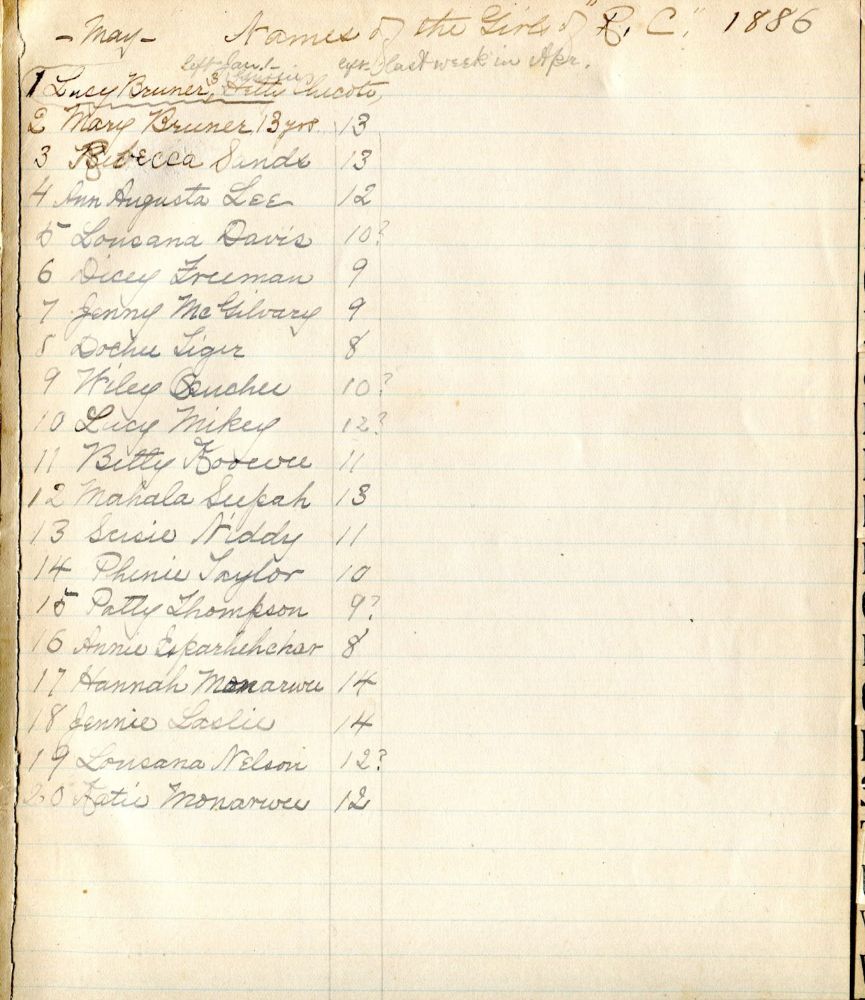 - May - Names of the Girls of "R. C." 1886
left Jan. 1- left last week in Apr.
1 Lucy Bruner, 13 Hetty Chicote,
2 Mary Bruner 13 yrs. 13
3 Rebecca Sands 13
4 Ann Augusta Lee 12
5 Lousana Davis 10?
6 Dicey Freeman 9
7 Jenny McGilvary 9
8 Dochee Tiger 8
9 Wiley 10?
10 Lucy Mikey 12?
11 Betty 11
12 Mahala Seepah 13
13 Susie Niddy 11
14 Phenie Taylor 10
15 Patty Thompson 9?
16 Annie 8
17 Hannah Monarwee 14
18 Jennie Laslie 14
19 Lousana Nelson 12?
20 Katie Monarwee 12